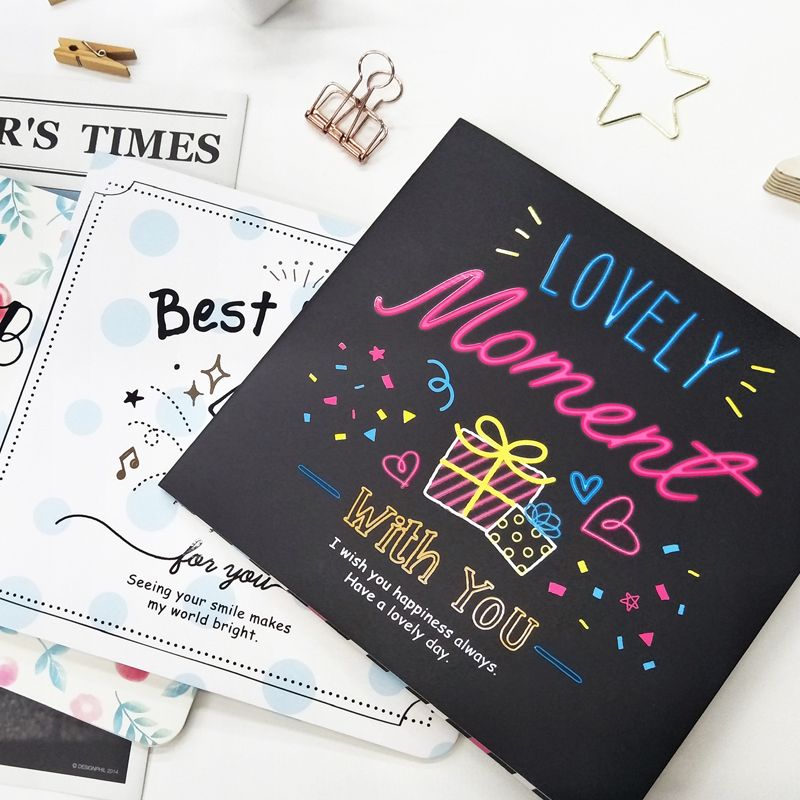 R'S TIMES
Best
for you
Seeing your smile makes
my world bright.
LOVELY
Moment
With YOU
I wish you happiness always.
Have a lovely day.
© DESIGNPHIL 2014